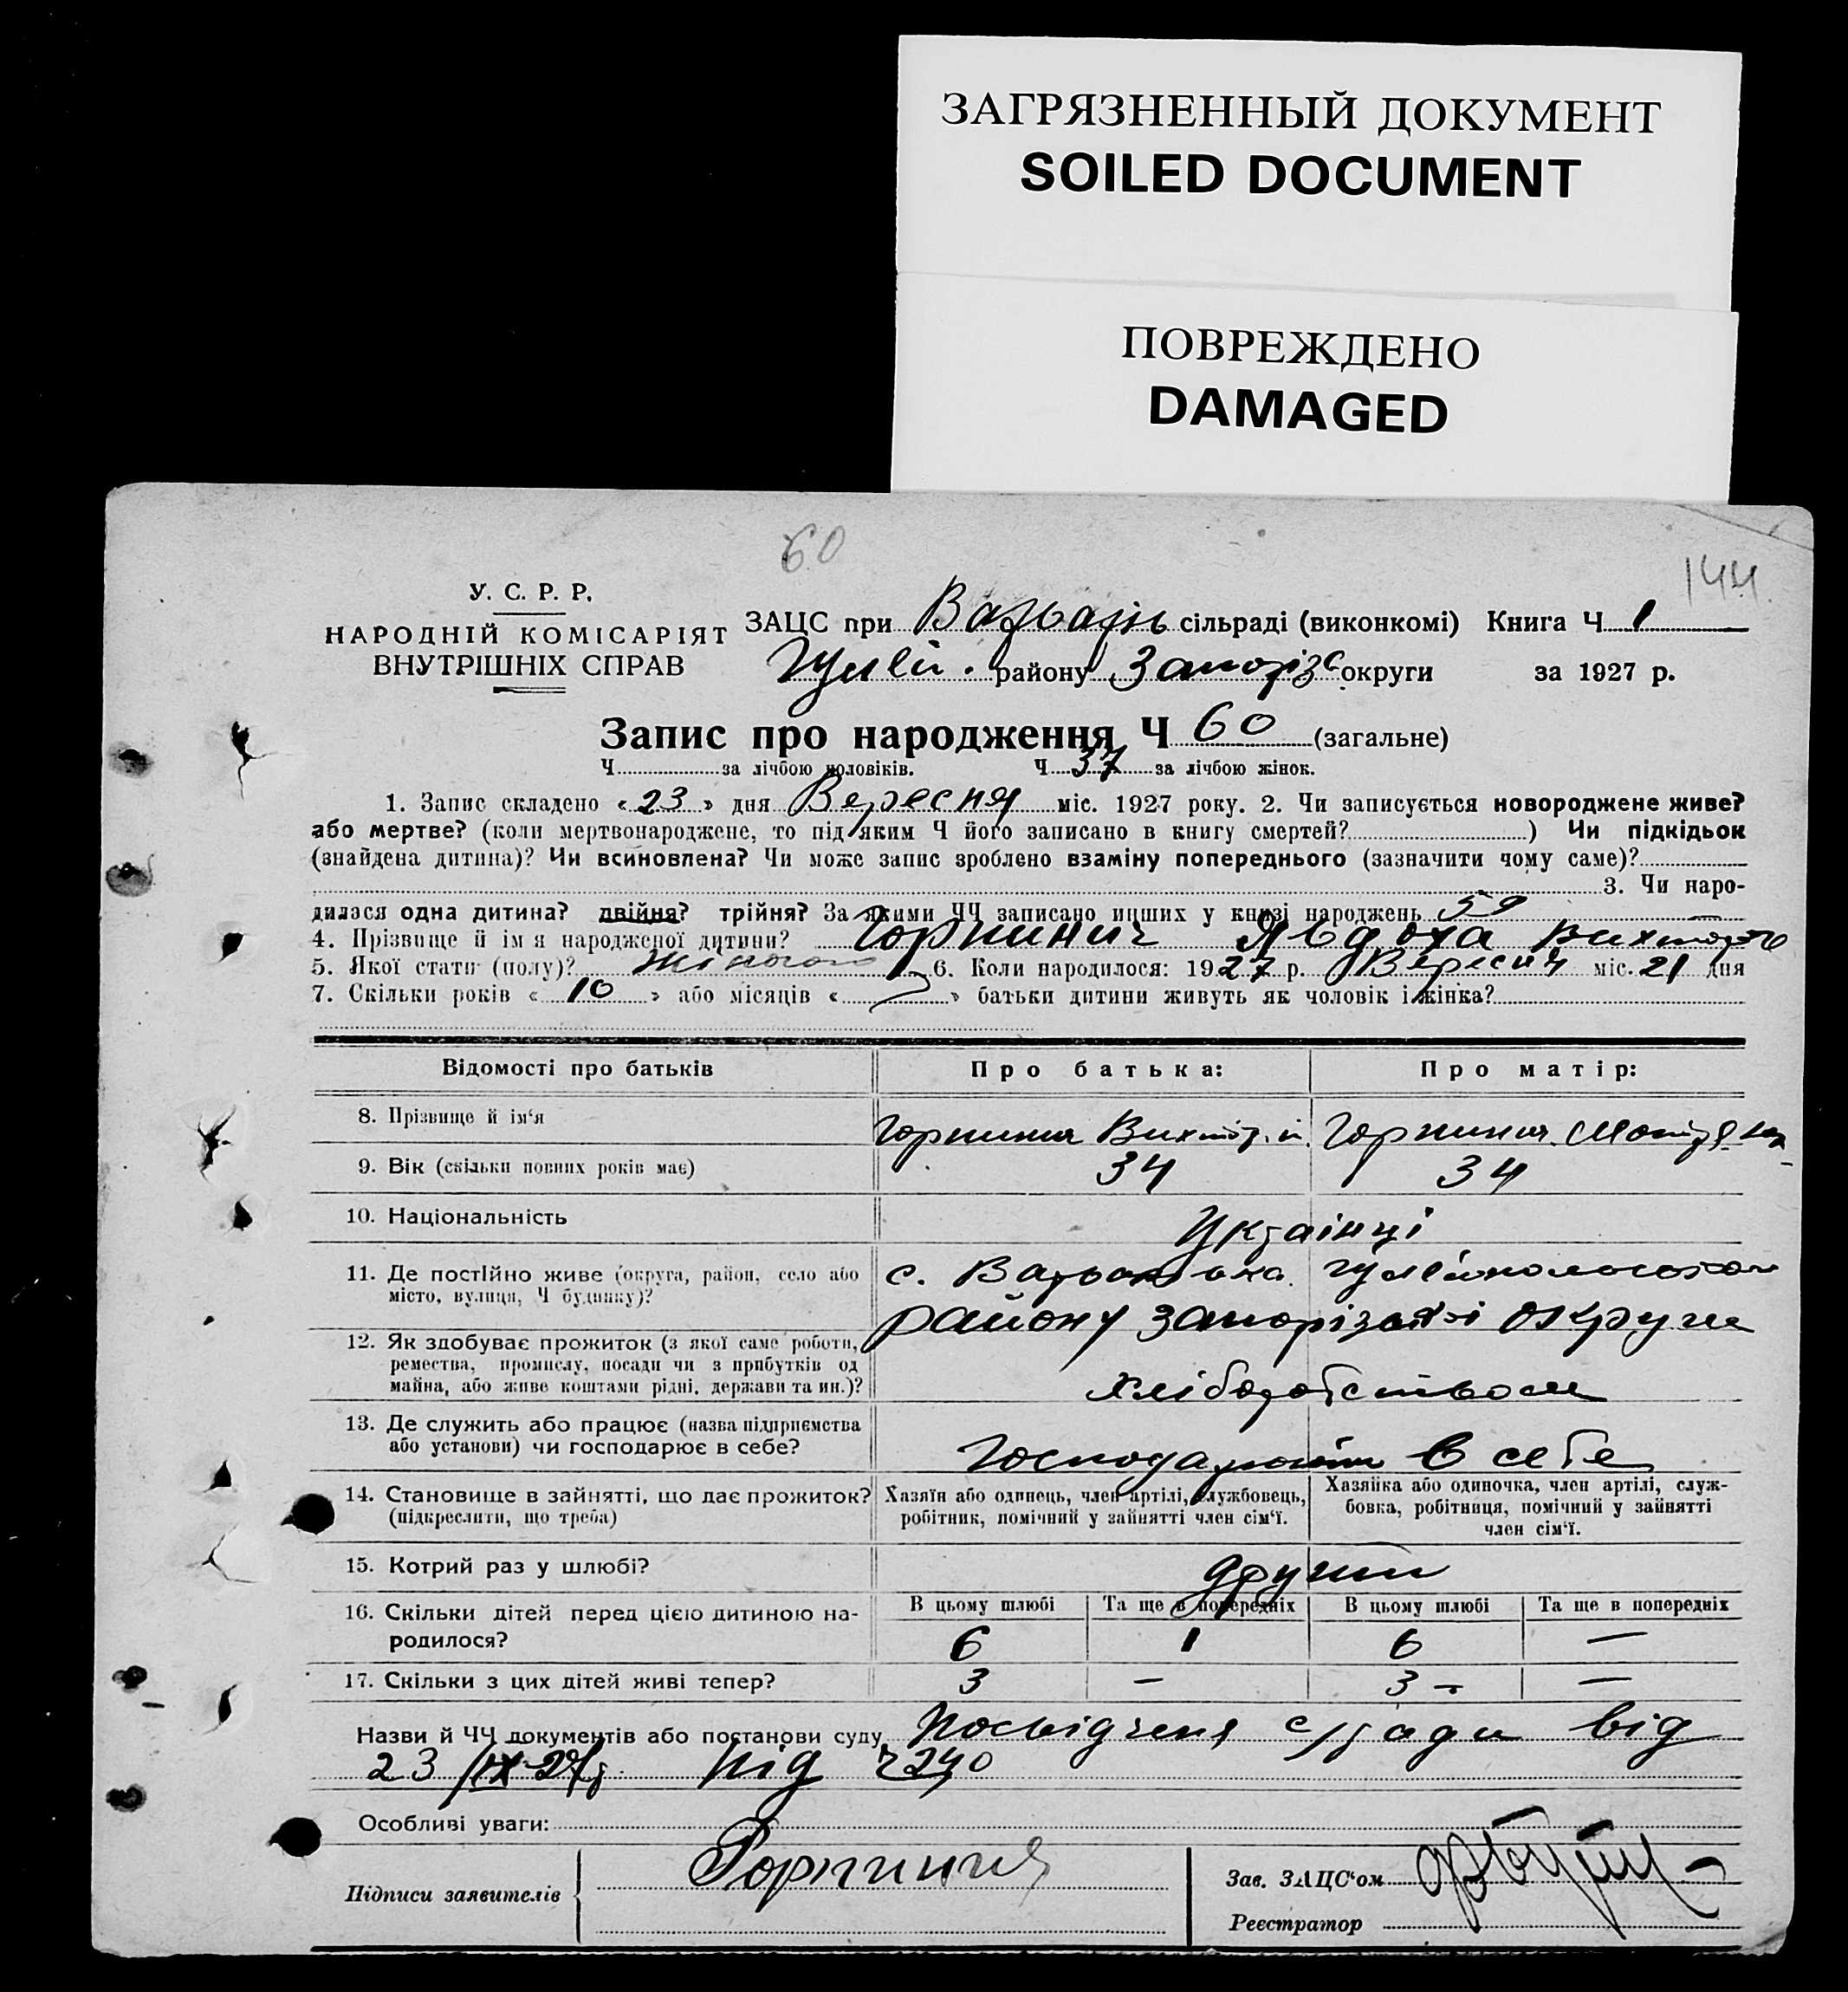 ЗАГРЯЗНЕННЫЙ ДОКУМЕНТ
SOILED DOCUMENT
ПОВРЕЖДЕНО
DAMAGED
60
144.
У. С. Р. Р.
НАРОДНІЙ КОМІСАРІЯТ
ВНУТРІШНІХ СПРАВ
ЗАЦС при сільраді (виконкомі) Книга Ч 1
Гуляй. району Запоріз округи за 1927 р.
Запис про народження Ч 60 (загальне)
Ч за лічбою чоловіків. Ч 37 за лічбою жінок.
1. Запис складено «23» дня Вересня міс. 1927 року. 2. Чи записується новороджене живе?
або мертве? (коли мертвонароджене, то під яким Ч його записано в книгу смертей? ) Чи підкідьок
(знайдена дитина)? Чи всиновлена? Чи може запис зроблено взаміну попереднього (зазначити чому саме)?
3. Чи наро-
дилася одна дитина? двійня? трійня? За якими ЧЧ записано инших у книзі народжень 59
4. Прізвище й ім'я народженої дитини? Явдоха
5. Якої стати (полу)? Жіночого 6. Коли народилося: 1927 р. Вересня міс. 21 дня
7. Скільки років «10» або місяців « » батьки дитини живуть як чоловік і жінка?
Відомості про батьків Про батька: Про матір:
8. Прізвище й ім'я
9. Вік (скільки повних років має) 34 34
10. Національність Українці
11. Де постійно живе (округа, район, село або с.
місто, вулиця, Ч будинку)? району Запорізької округи
12. Як здобуває прожиток (з якої саме роботи,
ремества, промислу, посади чи з прибутків од
майна, або живе коштами рідні, держави та ин.)? Хліборобством
13. Де служить або працює (назва підприємства
або установи) чи господарює в себе? Господарюють в себе
14. Становище в зайнятті, що дає прожиток? Хазяїн або одинець, член артілі, службовець, Хазяйка або одиночка, член артілі, служ-
(підкреслити, що треба) робітник, помічний у зайнятті член сім'ї. бовка, робітниця, помічний у зайнятті
член сім'ї.
15. Котрий раз у шлюбі? другий
16. Скільки дітей перед цією дитиною на- В цьому шлюбі Та ще в попередніх В цьому шлюбі Та ще в попередніх
родилося? 6 1 6 —
17. Скільки з цих дітей живі тепер? 3 — 3 — —
Назви й ЧЧ документів або постанови суду Посвідченя с/ради від
23/IX-27р. під 2240
Особливі уваги:
Підписи заявителів
Зав. ЗАЦС'ом
Реєстратор